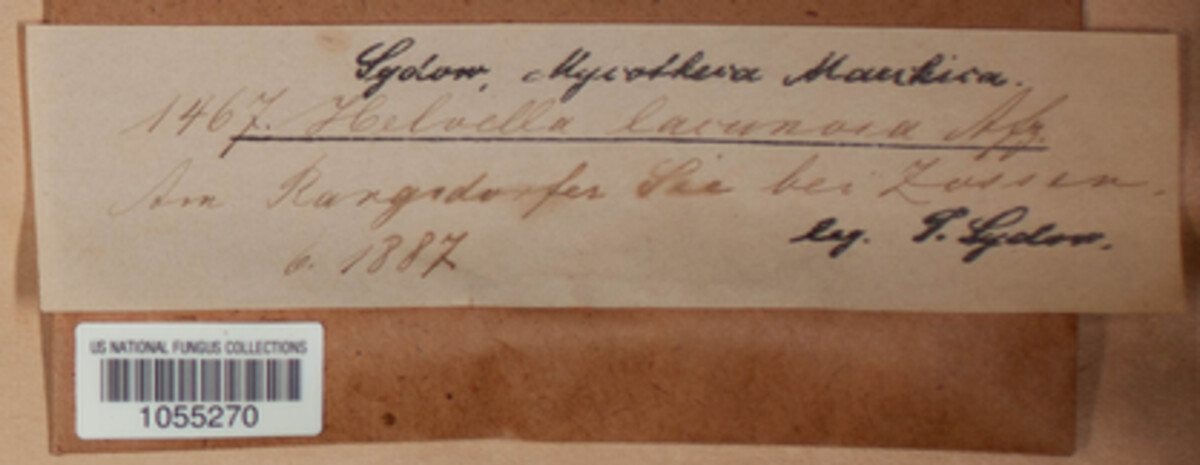 Sydow, Mycotheca Marchica.
1467. Helvella lacunosa Afz.
Am Rangsdorfer See bei Zossen.
6. 1887
leg. P. Sydow.
US NATIONAL FUNGUS COLLECTIONS
1055270